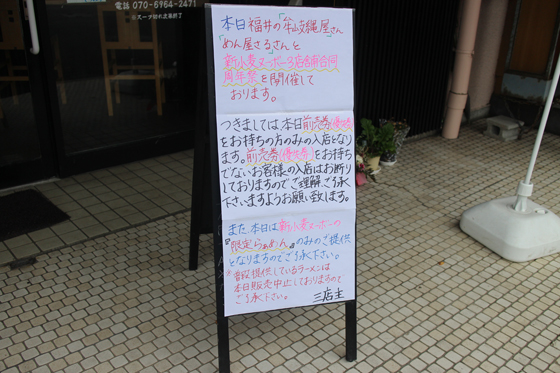 電話 070-5964-2471
※スープ切れ次第終了
本日 福井の「岐縄屋」さん
「めん屋さる」さんと
新小麦ヌーボー3店舗合同
周年祭を開催して
おります。
つきましては本日前売券(優先券)
をお持ちの方のみの入店となり
ます。前売券(優先券)をお持ち
でないお客様の入店はお断り
しておりますのでご理解ご了承
下さいますようお願い致します。
また、本日は新小麦ヌーボーの
『限定らぁめん』のみのご提供
となりますのでご了承下さい。
※普段提供しているラーメンは
本日販売中止しておりますので
ご了承下さい。
三店主